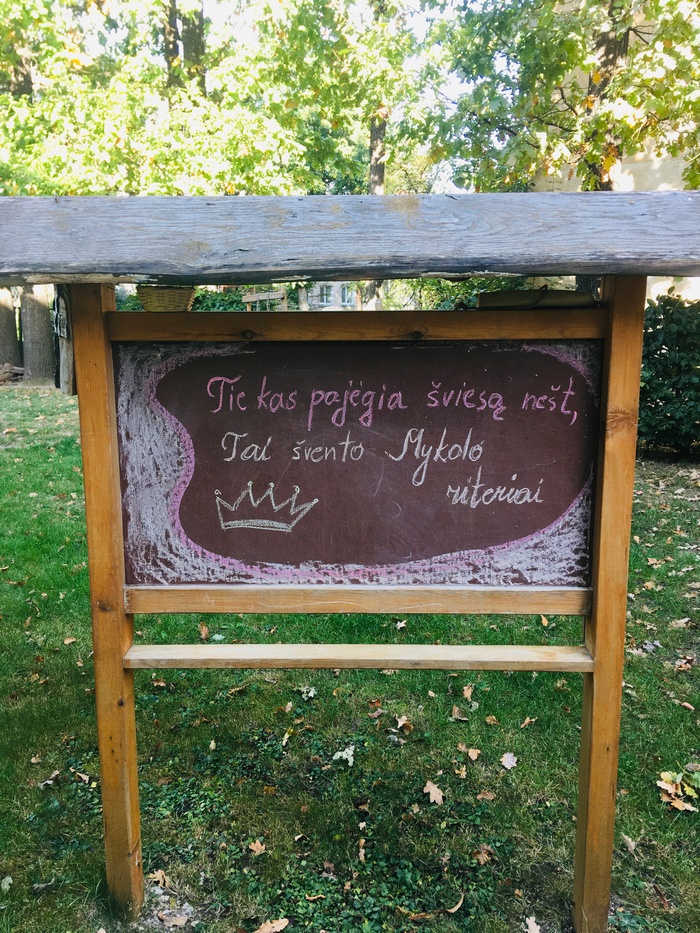 Tie kas pajėgia šviesą nešt,
Tai švento Mykolo
riteriai